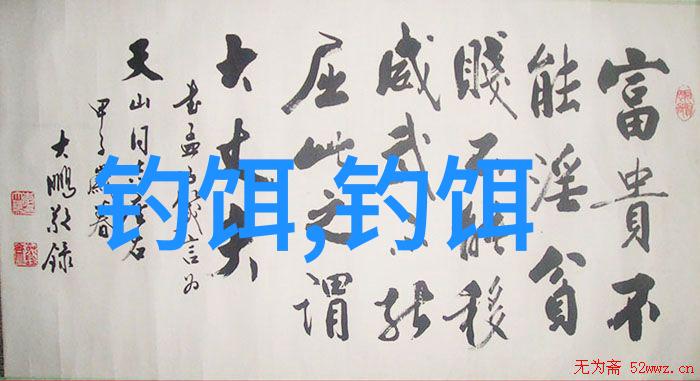 富貴不
能淫貧
賤不能移
威武不能
屈此之謂
大丈夫
书孟子箴言为
天山同志
甲子春
大鹏敬录
钓饵,钓饵
无为斋 52wwz.cn